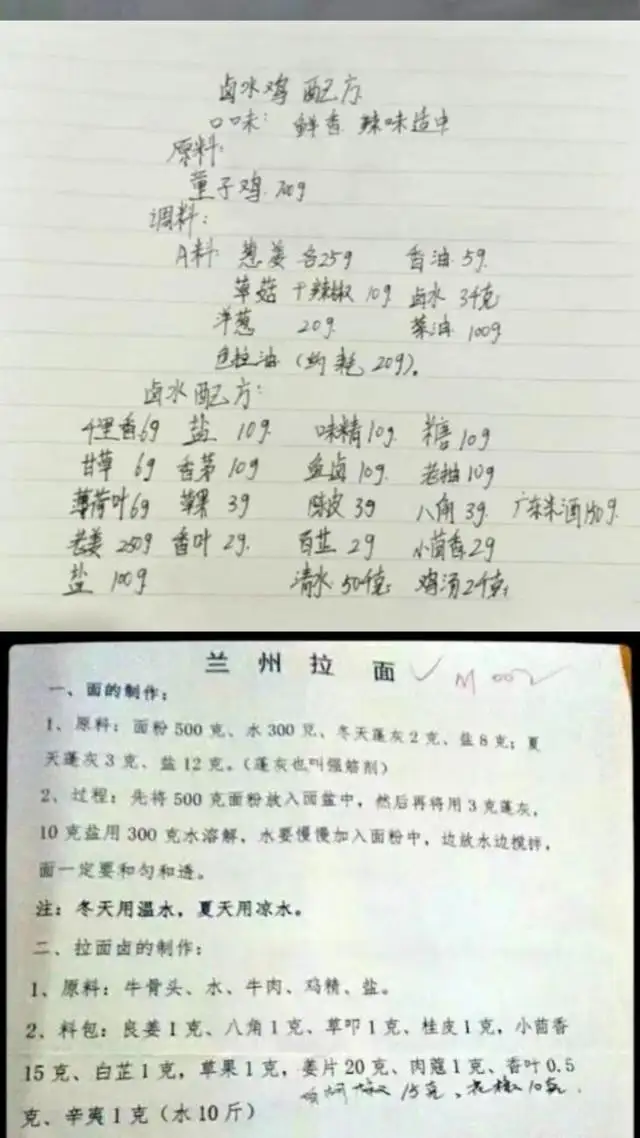 卤水鸡配方
口味: 鲜香 辣味适中
原料:
童子鸡 70g
调料:
A料 葱姜各25g 香油 5g
草菇 干辣椒 10g 卤水 3千克
洋葱 20g 菜油 100g
色拉油 (约耗 20g)。
卤水配方:
千里香6g 盐 10g 味精10g 糖10g
甘草 6g 香茅10g 鱼卤10g 老抽10g
薄荷叶6g 草果 3g 陈皮 3g 八角 3g 广东米酒150g
老姜 250g 香叶 2g 白芷 2g 小茴香2g
盐 100g 清水 50千克 鸡汤2千克
兰州拉面 M 002
一、面的制作:
1、原料:面粉 500 克、水 300 克、冬天蓬灰 2 克、盐 8 克;夏
天蓬灰 3 克、盐 12 克。(蓬灰也叫强筋剂)
2、过程:先将 500 克面粉放入面盆中,然后再将用 3 克蓬灰,
10 克盐用 300 克水溶解,水要慢慢加入面粉中,边放水边搅拌,
面一定要和匀和透。
注:冬天用温水,夏天用凉水。
二、拉面卤的制作:
1、原料:牛骨头、水、牛肉、鸡精、盐。
2、料包:良姜 1 克、八角 1 克、草叩 1 克、桂皮 1 克,小茴香
15 克、白芷 1 克,草果 1 克,姜片 20 克、肉蔻 1 克、香叶 0.5
克、辛夷 1 克(水 10 斤) 胡椒 15克、花椒 10克.